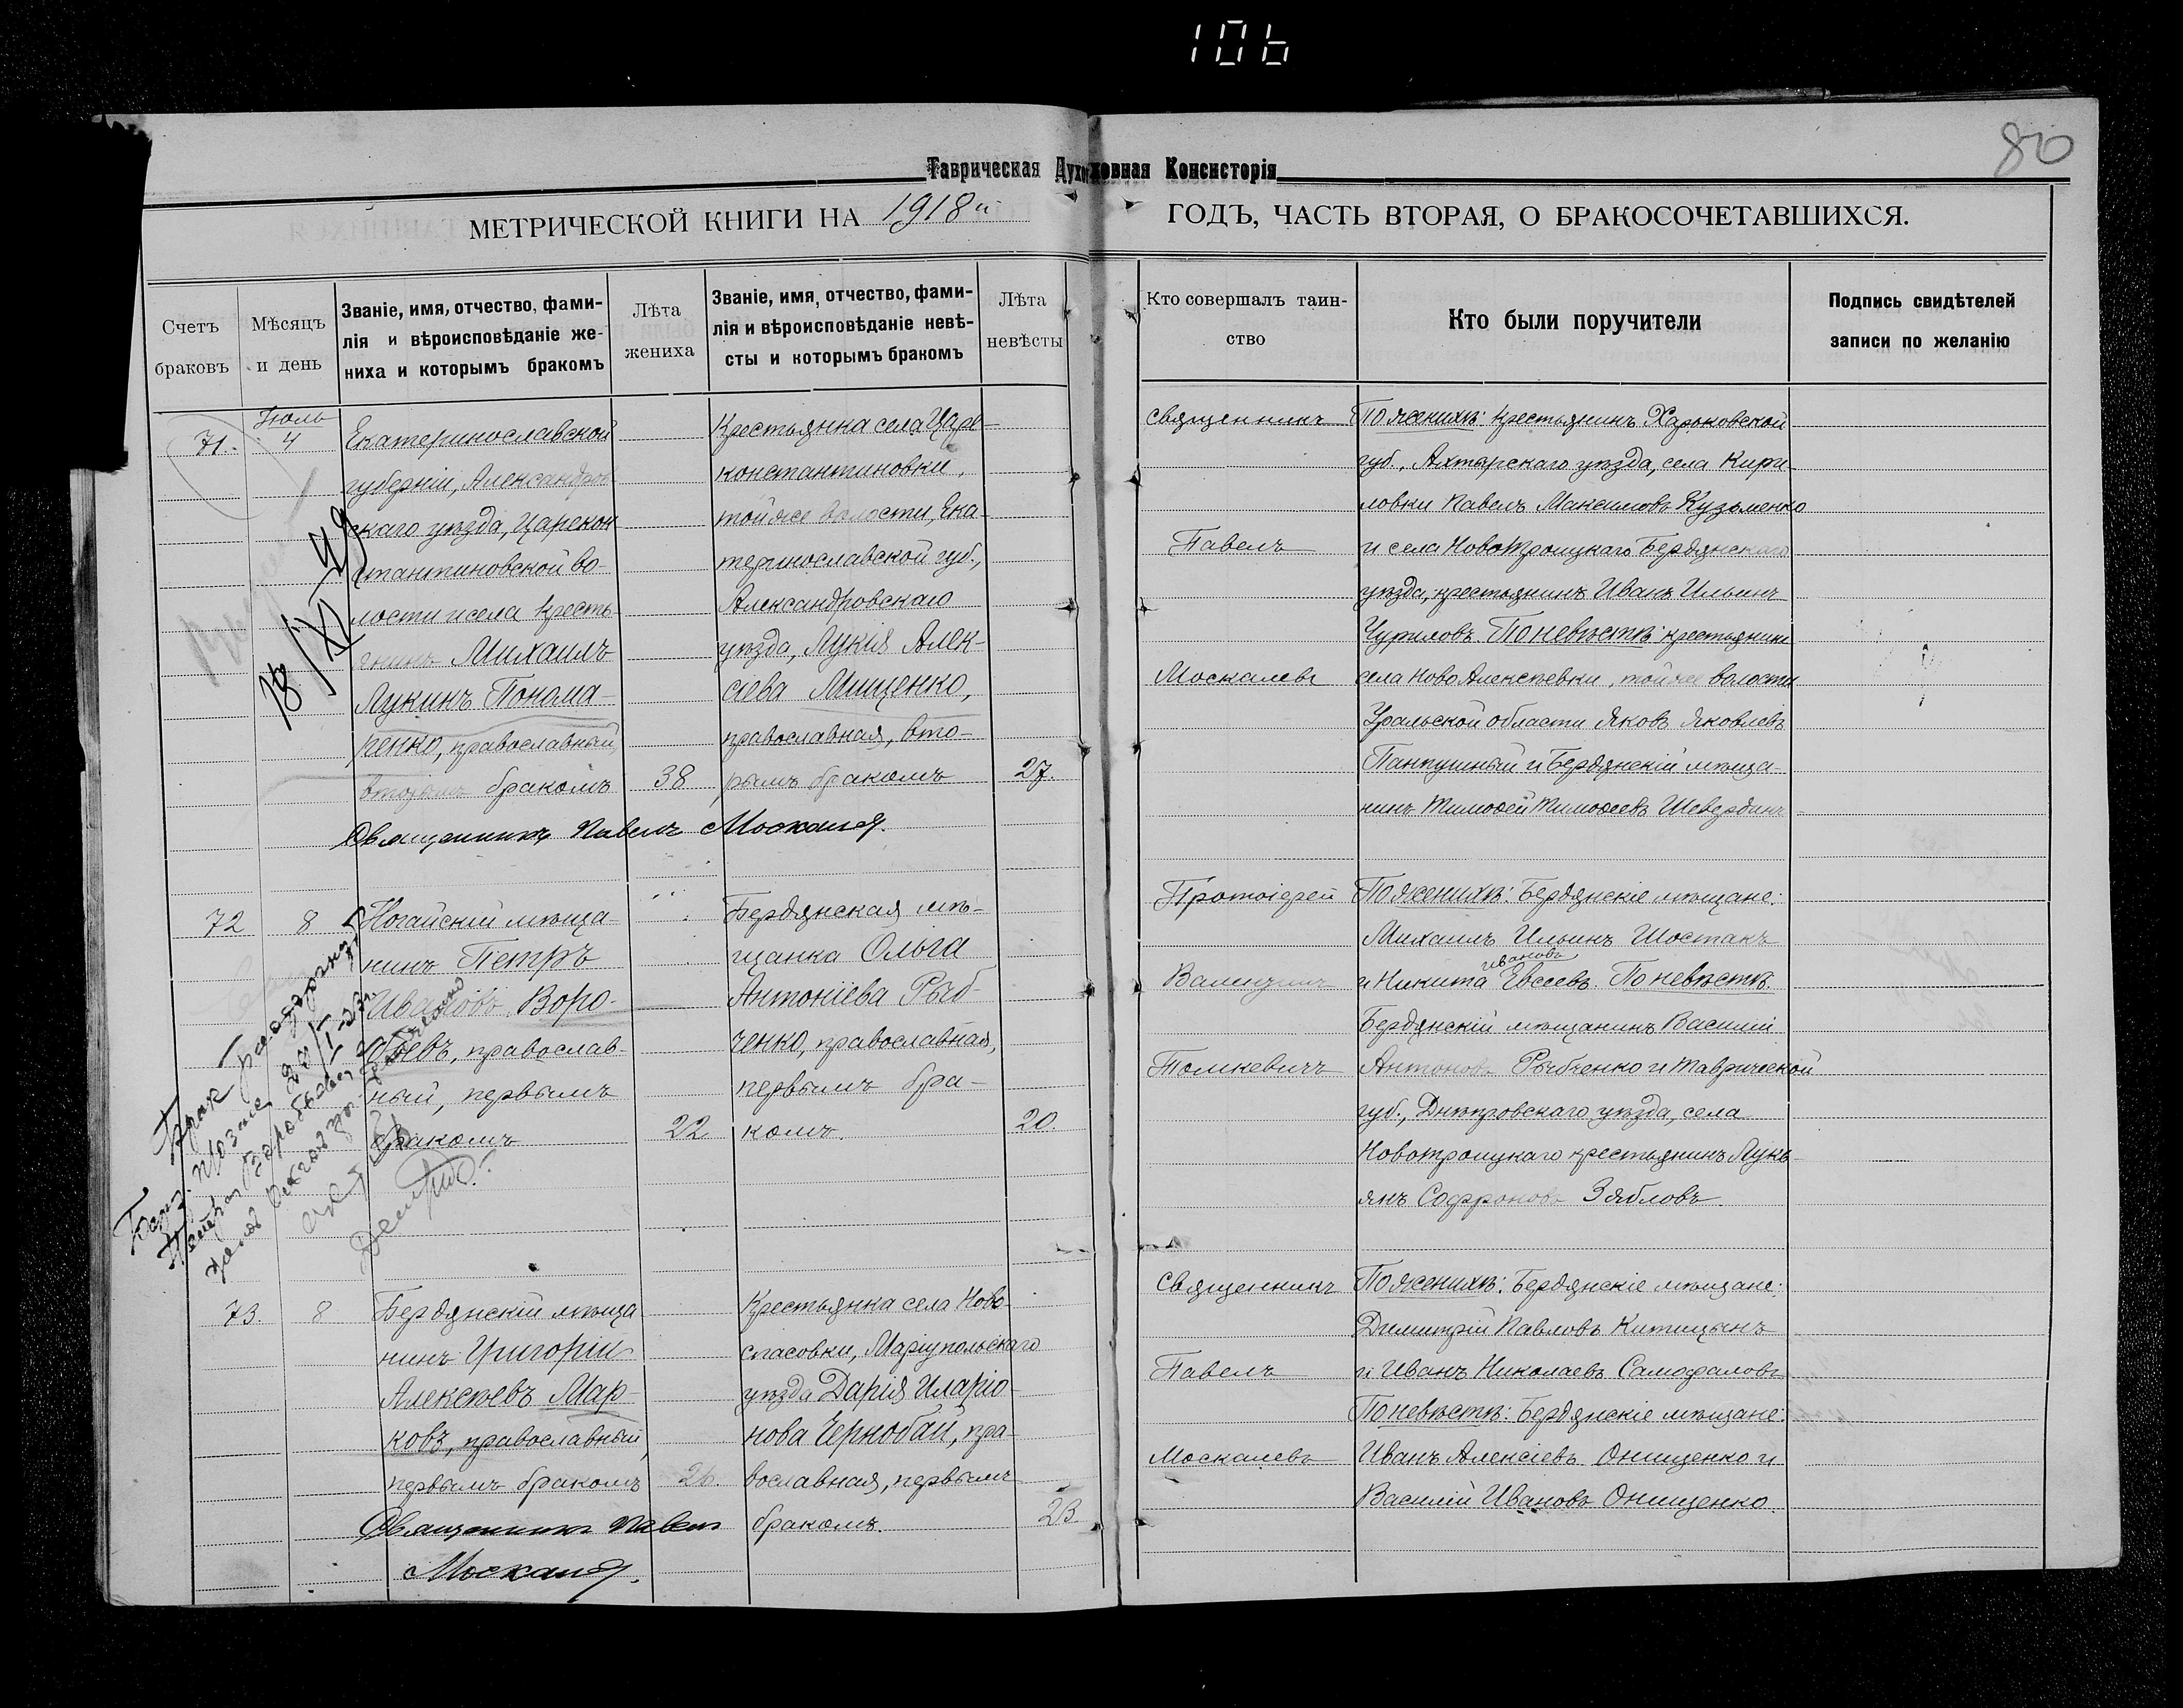 106
80
Таврическая Духовная Консисторія
МЕТРИЧЕСКОЙ КНИГИ НА 1918й ГОДЪ, ЧАСТЬ ВТОРАЯ, О БРАКОСОЧЕТАВШИХСЯ.
Счетъ
браковъ
Мѣсяцъ
и день
Званіе, имя, отчество, фами-
лія и вѣроисповѣданіе же-
ниха и которымъ бракомъ
Лѣта
жениха
Званіе, имя, отчество, фами-
лія и вѣроисповѣданіе невѣ-
сты и которымъ бракомъ
Лѣта
невѣсты
Кто совершалъ таин-
ство
Кто были поручители
Подпись свидѣтелей
записи по желанію
71.
Іюль
4
Екатеринославской
губерніи, Александров
скаго уѣзда, Царекон
стантиновской во-
лости и села кресть
янинъ Михаилъ
Лукинъ Понома-
ренко, православный,
вторымъ бракомъ
38
Крестьянка села Царе-
константиновки,
той же волости, Ека-
теринославской губ.,
Александровскаго
уѣзда, Лукія Алек-
сіева Мищенко,
православная, вто-
рымъ бракомъ
27.
Священникъ
Павелъ
Москалевъ
По женихѣ: крестьянинъ Харьковской
губ., Ахтырскаго уѣзда, села Кири-
ловки Павелъ Максимовъ Кузьменко
и села Новотроицкаго Бердянскаго
уѣзда, крестьянинъ Иванъ Ильинъ
Чуриловъ. По невѣстѣ: крестьянинъ
села Ново Алексѣевки, той же волости
Уральской области Яковъ Яковлевъ
и Бердянскій мѣща-
нинъ Тимоѳей Тимоѳеевъ
Священникъ Павелъ Москалев.
18/XI-49
72
8
Ногайскій мѣща-
нинъ Петръ
Ивановъ Воро-
бьевъ, православ-
ный, первымъ
бракомъ
22
Бердянская мѣ-
щанка Ольга
Антоніева Рыб-
ченко, православная,
первымъ бра-
комъ.
20.
Протоіерей
Валеріанъ
Томкевичъ
По женихѣ: Бердянскіе мѣщане:
Михаилъ Ильинъ Шостакъ
и Никита Ивановъ Евсеевъ. По невѣстѣ:
Бердянскій мѣщанинъ Василій
Антоновъ Рыбченко и Таврической
губ., Днѣпровскаго уѣзда, села
Новотроицкаго крестьянинъ Лукь
янъ Софроновъ Зябловъ.
Брак
73.
8
Бердянскій мѣща
нинъ Григорій
Алексѣевъ Мар-
ковъ, православный,
первымъ бракомъ
26.
Крестьянка села Ново-
спасовки, Маріупольскаго
уѣзда Дарія Иларіо-
нова Чернобай, пра-
вославная, первымъ
бракомъ.
23
Священникъ
Павелъ
Москалевъ
По женихѣ: Бердянскіе мѣщане:
Димитрій Павловъ Китицынъ
и Иванъ Николаевъ Самофаловъ
По невѣстѣ: Бердянскіе мѣщане:
Иванъ Алексіевъ Онищенко и
Василій Ивановъ Онищенко.
Священникъ Павелъ
Москалев.